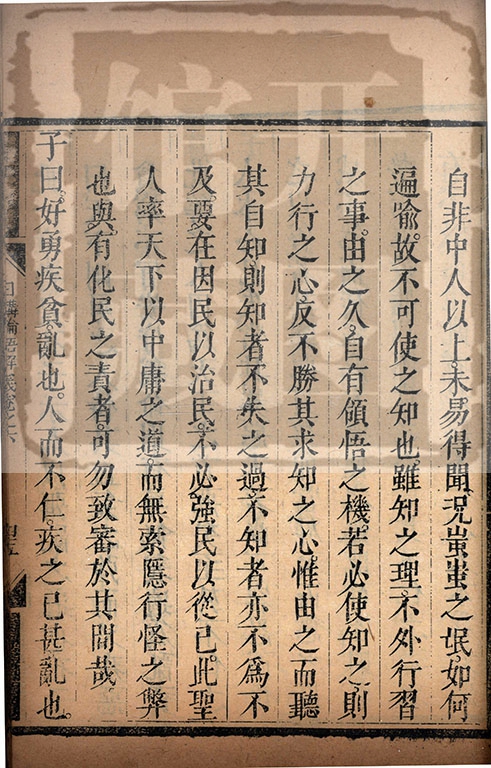 自非中人以上。未易得聞。況蚩蚩之氓。如何
遍喻。故不可使之知也。雖知之理。不外行習
之事。由之久。自有領悟之機。若必使知之。則
力行之心。反不勝其求知之心。惟由之而聽
其自知。則知者不失之過。不知者亦不爲不
及。要在因民以治民。不必強民以從己。此聖
人率天下以中庸之道。而無索隱行怪之弊
也與。有化民之責者。可勿致審於其間哉。
子曰。好勇疾貧。亂也。人而不仁。疾之已甚。亂也。